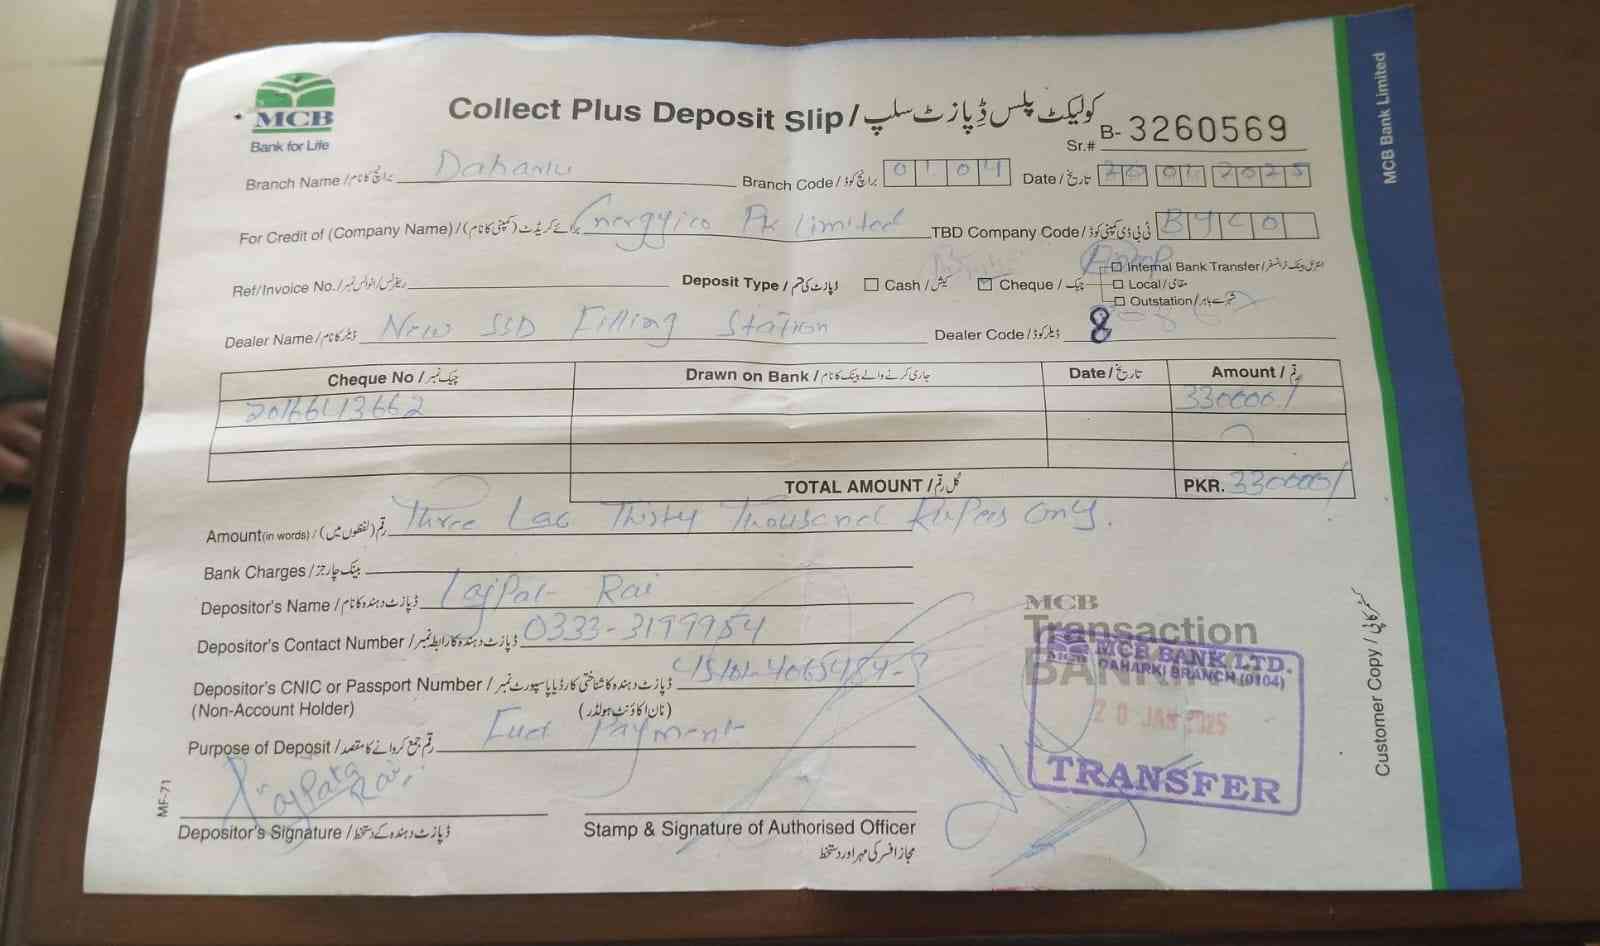 MCB
Bank for Life
Collect Plus Deposit Slip / کولیکٹ پلس ڈپازٹ سلپ
Sr.# B- 3260569
Branch Name / برانچ کا نام Daharki Branch Code / برانچ کوڈ 0104 Date / تاریخ 20 01 2025
For Credit of (Company Name) / برائے کریڈٹ (کمپنی کا نام) Energyico Pk Limited TBD Company Code / ٹی بی ڈی کمپنی کوڈ BYCO
Ref/Invoice No. / ریفرنس/انوائس نمبر Deposit Type / ڈپازٹ کی قسم Cash / کیش Cheque / چیک Internal Bank Transfer / انٹرنل بینک ٹرانسفر
Local / مقامی
Outstation / شہر سے باہر
Dealer Name / ڈیلر کا نام New SSD Filling Station Dealer Code / ڈیلر کوڈ 8
Cheque No / چیک نمبر Drawn on Bank / جاری کرنے والے بینک کا نام Date / تاریخ Amount / رقم
330000/
TOTAL AMOUNT / کل رقم PKR. 330000/
Amount (in words) / رقم (لفظوں میں) Three Lac Thirty Thousand Rupees Only.
Bank Charges / بینک چارجز
Depositor's Name / ڈپازٹ دہندہ کا نام LajPat Rai
Depositor's Contact Number / ڈپازٹ دہندہ کا رابطہ نمبر 0333-3199954
Depositor's CNIC or Passport Number / ڈپازٹ دہندہ کا شناختی کارڈ یا پاسپورٹ نمبر
(Non-Account Holder) (نان اکاؤنٹ ہولڈر)
Purpose of Deposit / رقم جمع کروانے کا مقصد Fuel Payment
LajPat Rai
Depositor's Signature / ڈپازٹ دہندہ کے دستخط
Stamp & Signature of Authorised Officer
مجاز افسر کی مہر اور دستخط
MCB
Transaction
BANKING
MCB BANK LTD.
DAHARKI BRANCH (0104)
20 JAN 2025
TRANSFER
MF-71
Customer Copy / کسٹمر کاپی
MCB Bank Limited